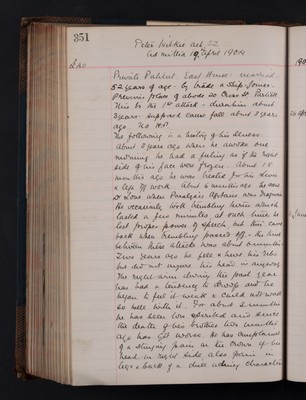 351
Peter Wilkie aet 52
Admitted 19 April 1904
Private Patient East House married
52 years of age - by trade a Ship
Previous place of abode
This is the 1st attack - duration about
2 years. supposed cause fall about 2 years
ago No H.P.
The following is a history of his illness.
About 2 years ago when he awoke one
morning he had a feeling as if the right
side of his face were frozen. About 18
months ago he was treated for his liver
& left off work. About 6 months ago he saw
Dr when Paralysis Agitans was diagnosed
He occasionally took trembling turns which
lasted a few minutes at such times he
lost proper powers of speech and this came
back when trembling passed off - the time
between these attacks was about 6 months
Two years ago he fell & hurt his ribs
but did not injure his head in anyway
The right arm during the past year
has had a tendency to droop and he
began to feel it weak & could not work
so well with it. For about 2 months
he has been low spirited and since
the death of his brother two months
ago has got worse. He has complained
of a stinging pain in the crown of his
head on right side, also pain in
legs & back of a dull aching character